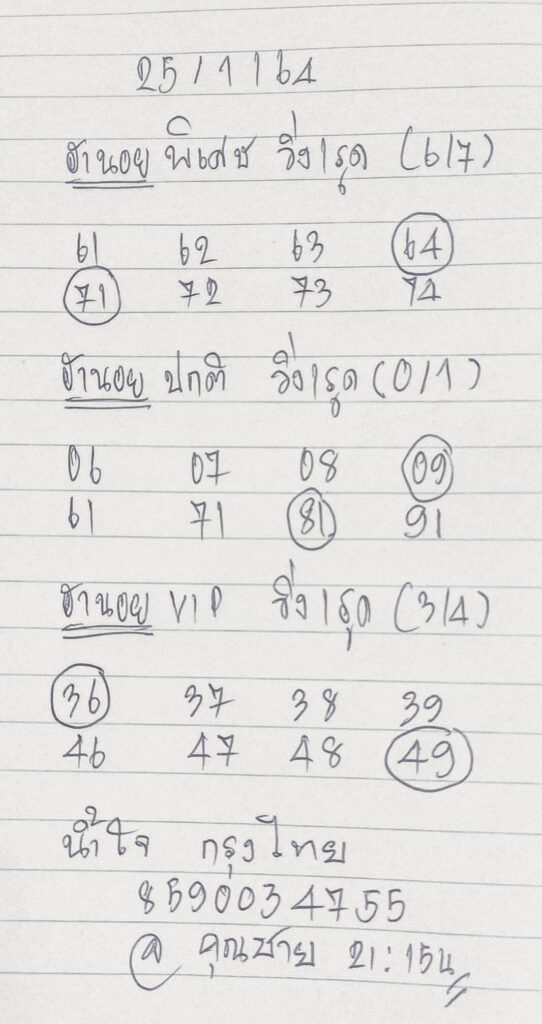 25/1/64
ฮานอย พิเศษ วิ่ง/รูด (6/7)
61 62 63 64
71 72 73 74
ฮานอย ปกติ วิ่ง/รูด (0/1)
06 07 08 09
61 71 81 91
ฮานอย VIP วิ่ง/รูด (3/4)
36 37 38 39
46 47 48 49
น้ำใจ กรุงไทย
8590034755
@ คุณชาย 21:15น